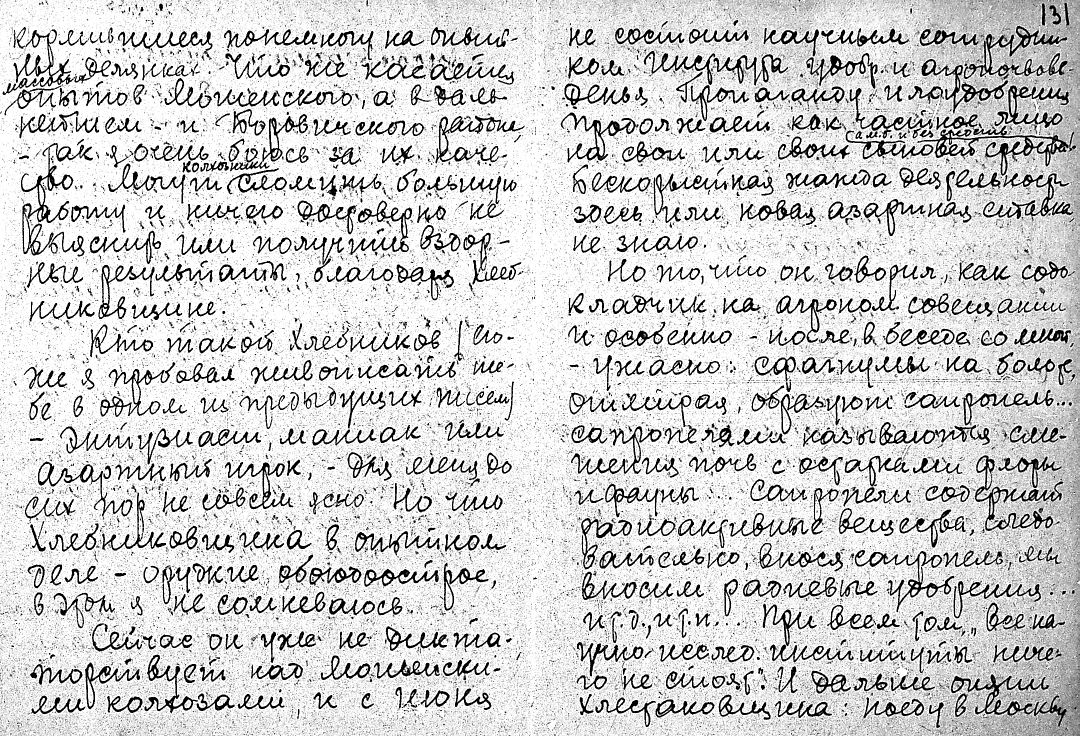 131
кормившиеся понемногу на опыт-
ных делянках. Что же касается
массовых
опытов Мошенского, а в даль-
нейшем - и Боровичского района,
- так я очень боюсь за их каче-
колхозники
ство. Могут сломить большую
работу и ничего достоверно не
выяснить или получить вздор-
ные результаты, благодаря Хлеб-
никовщине.
Кто такой Хлебников (по-
же я пробовал живописать те-
бе в одном из предыдущих писем)
- Энтузиаст, маниак или
азартный игрок, - для меня до
сих пор не совсем ясно. Но что
Хлебниковщина в опытном
деле - орудие обоюдоострое,
в этом я не сомневаюсь.
Сейчас он уже не дикта-
торствует над Мошенски-
ми колхозами, и с июня
не состоит научным сотрудни-
ком Института удобр. и агропочвове-
денья. Пропаганду илоудобрения
продолжает как частное лицо
на свои или своих сыновей средства.
Бескорыстная жажда деятельности
здесь или новая азартная ставка
не знаю.
Но то, что он говорил, как содо-
кладчик на агроном совещании
и особенно - после, в беседе со мной,
- ужасно: сфагнумы на болоте,
отмирая, образуют сапропель...
сапропелями называются сме-
шения почв с остатками флоры
и фауны... Сапропели содержат
радиоактивные вещества, следо-
вательно, внося сапропель, мы
вносим радиевые удобрения...
и т.д., и т.п... При всем том, "все на-
учно-исслед. институты ниче-
го не стоят". И дальше опять
Хлестаковщина: поеду в Москву,